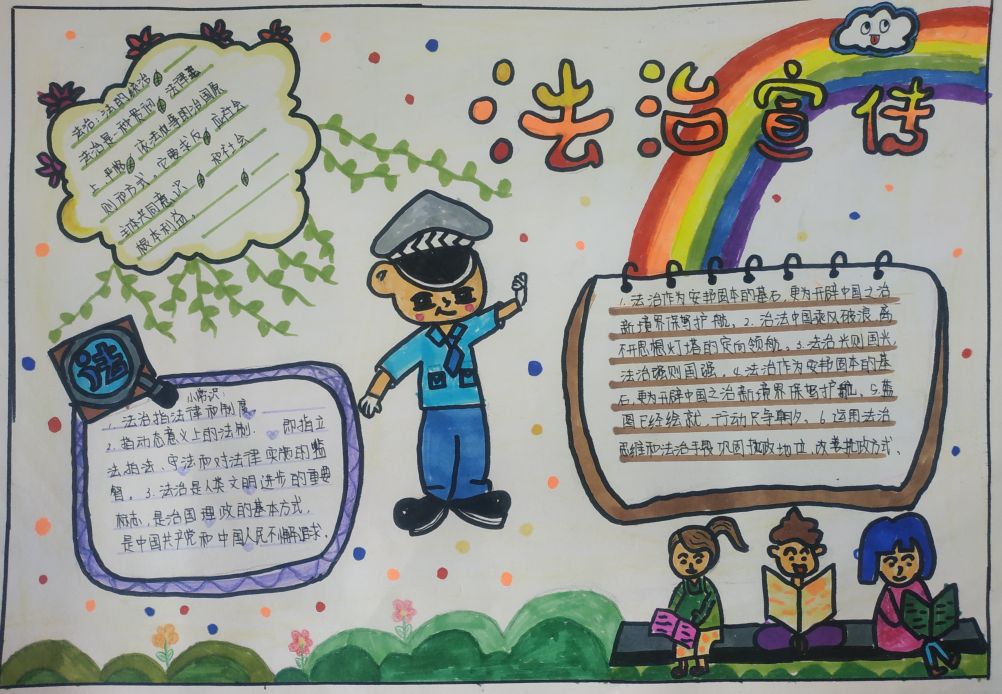 法治宣传
法治:法的统治 法律基
法治是一种贵和 应社会
上平等 依法性导的治国原
则和方式,它要求反 和社会
主体共同意识
根本利益。
法
小常识:
1. 法治指法律和制度
2. 指动态意义上的法制. 即指立
法执法、守法和对法律实施的监
督。3. 法治是人类文明进步的重要
标志,是治国理政的基本方式,
是中国共产党和中国人民不懈追求.
1. 法治作为安邦固本的基石,更为开辟中国之治
新境界保驾护航。2. 治法中国乘风破浪离
不开思想灯塔的定向领航。3. 法治兴则国兴
法治强则国强。4. 法治作为安邦固本的基
石,更为开辟中国之治新境界保驾护航。5. 蓝
图已经绘就,行动只争朝夕。6. 运用法治
思维和法治手段巩固执政地位、改善执政方式、